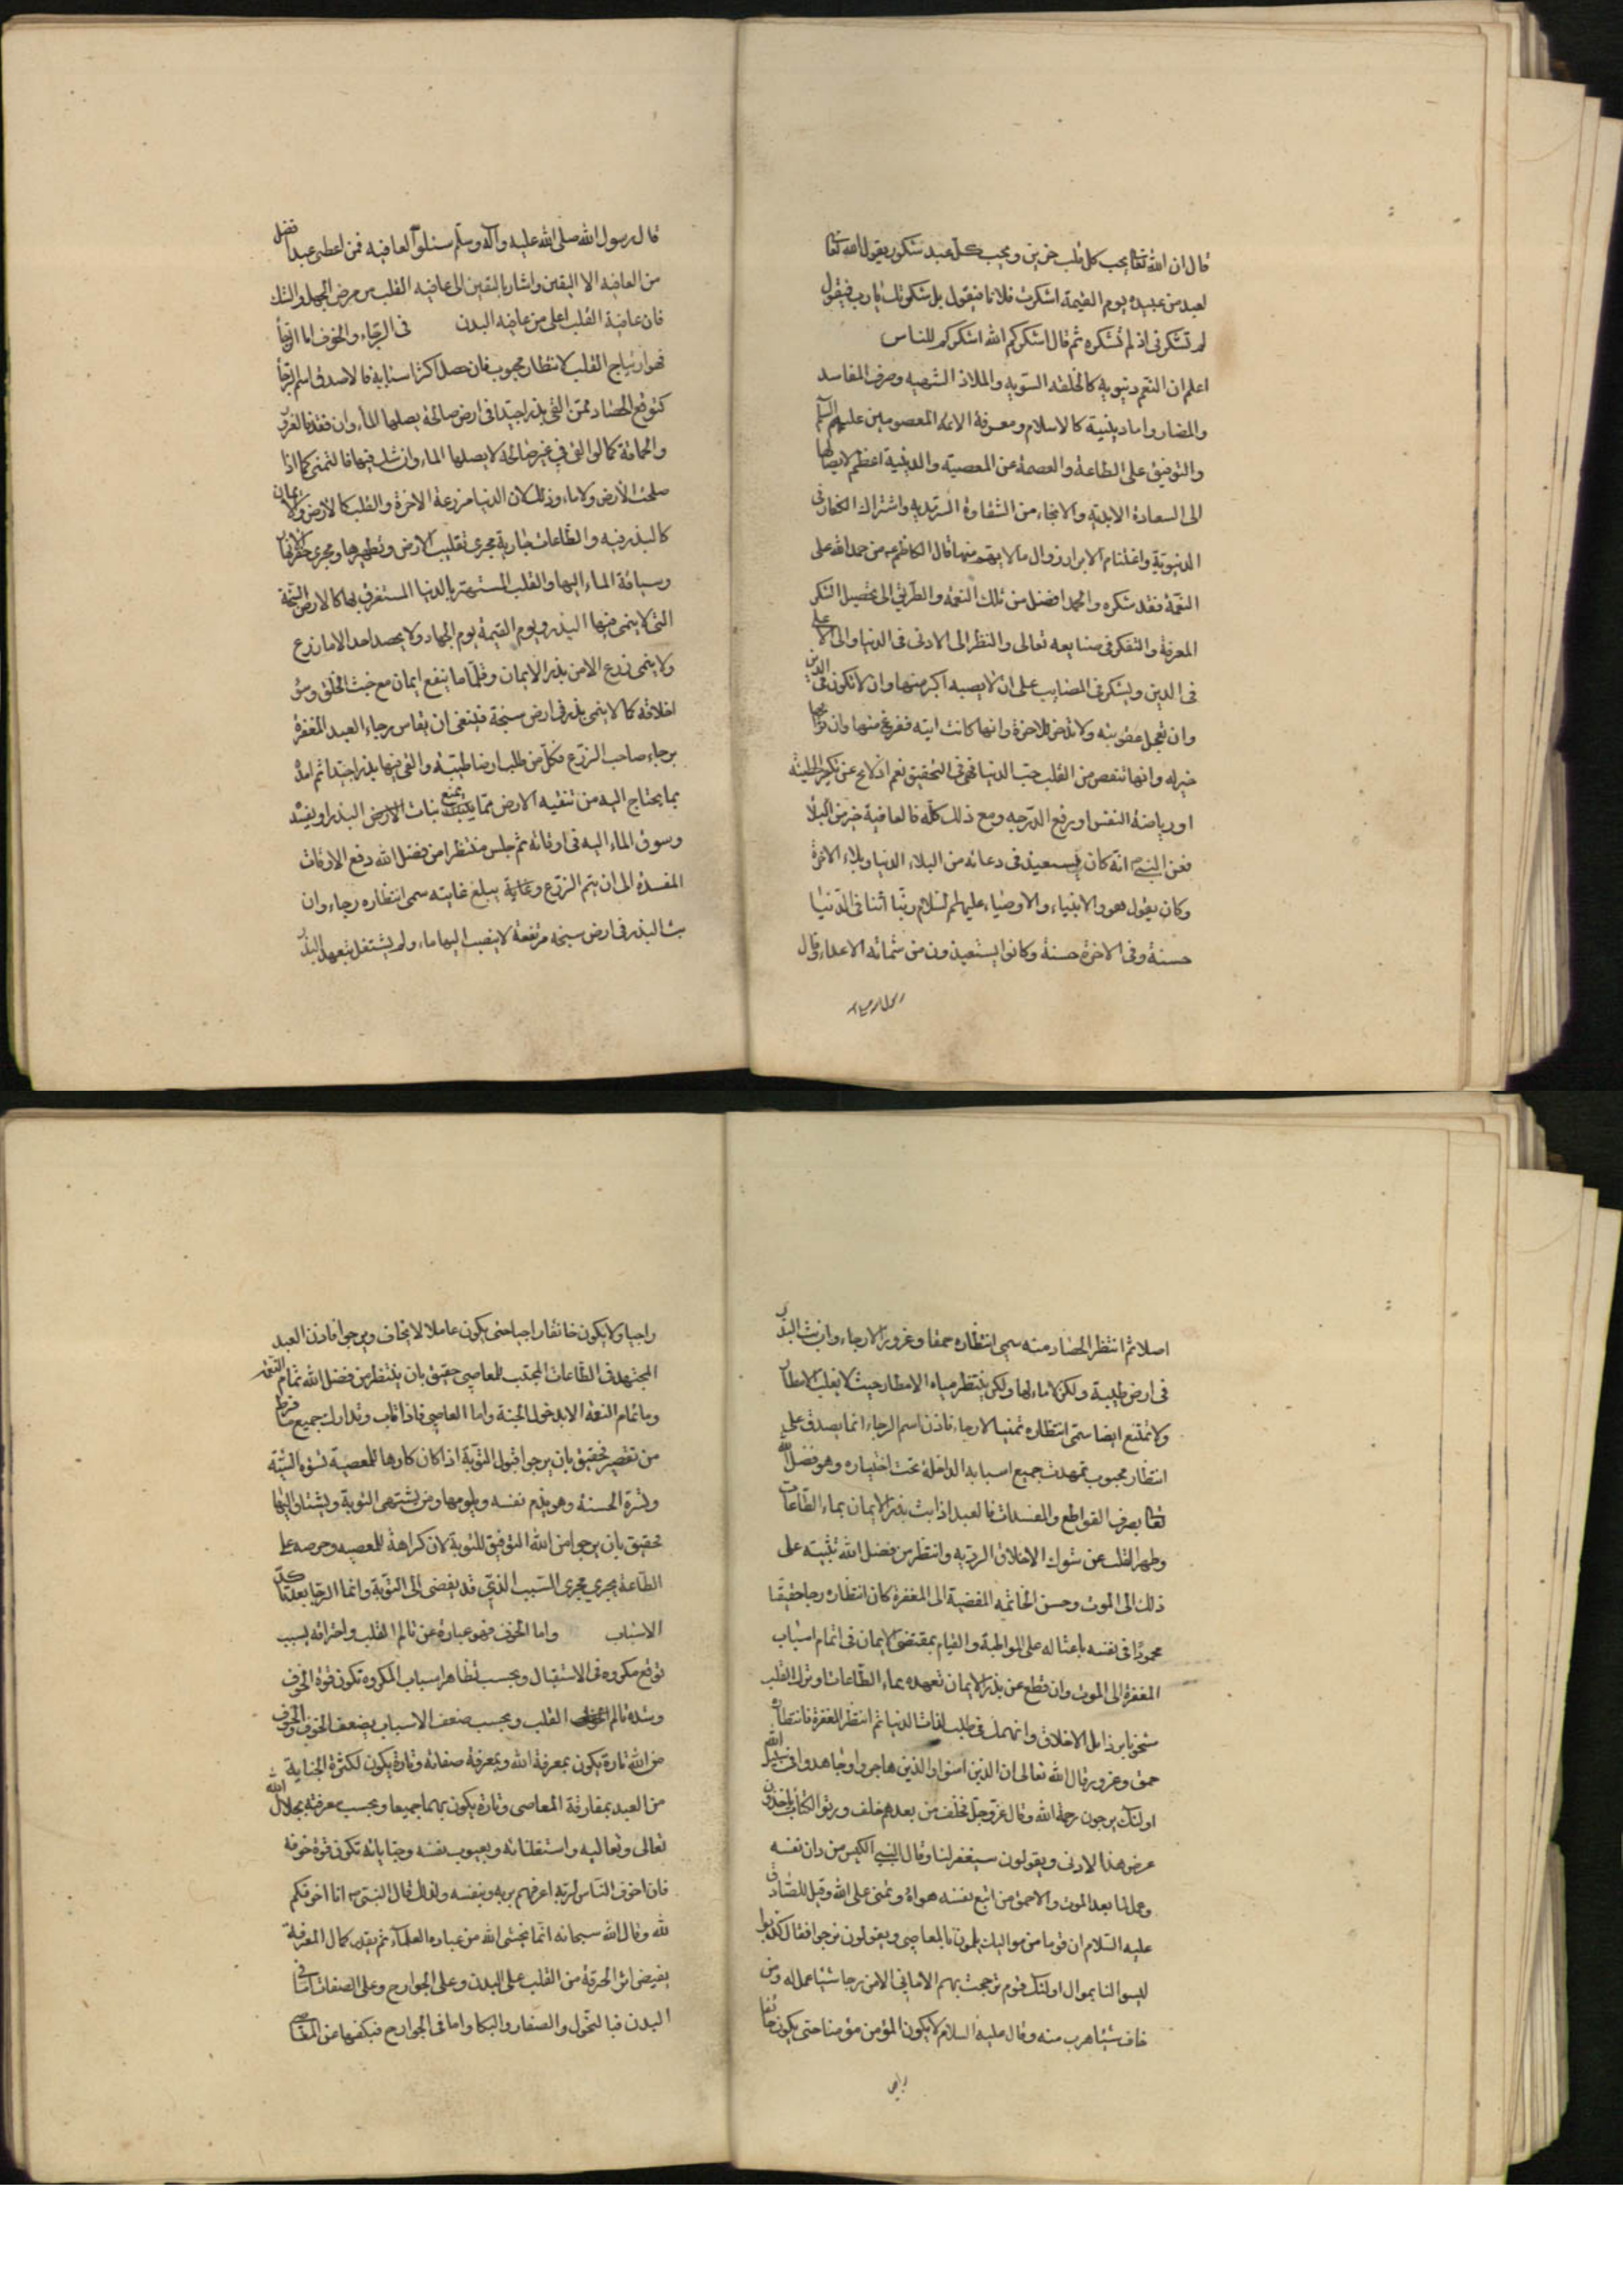 قال ان الله تعالى يحب كل قلب حزين ويحب كل عبد شكور يقول الله تعالى
لعبد من عبيده يوم القيمة اشكرت فلانا فيقول بل شكرتك يا رب فيقول
لم تشكرني اذ لم تشكره ثم قال اشكركم الله اشكركم للناس
اعلم ان النعم دنيوية كالخلقة السوية والملاذ الشهية وصرف المفاسد
والمضار واما دينية كالاسلام ومعرفة الائمة المعصومين عليهم السلام
والتوفيق على الطاعة والعصمة عن المعصية والدينية اعظم لايصالها
الى السعادة الابدية والانجاء من الشقاوة السرمدية واشتراك الكفار في
الدنيوية واغتنام الابرار زوال ما لا يهم منها قال الكاظم ع من حمد الله على
النعمة فقد شكره والحمد افضل من تلك النعمة والطريق الى تحصيل الشكر
المعرفة والتفكر في صنايعه تعالى والنظر الى الادنى في الدنيا والى الاعلى
في الدين ويشكر في المصايب على ان لا يصيبه اكبر منها وان لا تكون في الدين
وان تعجل عقوبته ولا تدخر للاخرة وانها كانت اتية ففرغ منها وان ثوابها
خير له وانها تنقص من القلب حب الدنيا فهي في التحقيق نعم اذ لا يخ عن تكفير الخطيئة
او رياضة النفس او رفع الدرجه ومع ذلك كله فالعافية خير من البلاء
فعن النبي ص انه كان يستعيذ في دعائه من البلاء الدنيا وبلاء الاخرة
وكان يقول هو والانبياء والاوصياء عليهم السلام ربنا آتنا في الدنيا
حسنة وفي الاخرة حسنة وكانوا يستعيذون من شماتة الاعداء وقال
قال رسول الله صلى الله عليه وآله وسلم سئلوا العافيه فمن اعطى عبدا فضل
من العافيه الا اليقين واشار باليقين الى عافيه القلب من مرض الجهل والشك
فان عافية القلب اعلى من عافيه البدن في الرجاء والخوف اما الرجا
فهو ارتياح القلب لانتظار محبوب فان حصل اكثر اسبابه فالاصدق اسم الرجا
كتوقع الحصاد ممن القى بذرا جيدا في ارض صالحة يصلها الماء وان فقد فالغرور
والحماقة كما لو القى في غير صالحة لا يصلها الماء وان شك فيها فالتمنى كما اذا
صلحت الارض ولا ماء وذلك لان الدنيا مزرعة الاخرة والقلب كالارض والايمان
كالبذر فيه والطاعات جارية مجرى تقليب الارض وتطهيرها ومجرى حفر الانهار
وسياقة الماء اليها والقلب المستهتر بالدنيا المستغرق بها كالارض السبخة
التي لا ينمى فيها البذر ويوم القيمة يوم الحصاد ولا يحصد احد الا ما زرع
ولا ينمى زرع الا من بذر الايمان وقلما ما ينفع ايمان مع خبث الخلق وسوء
اخلاقه كما لا ينمى بذر في ارض سبخة فينبغى ان يقاس رجاء العبد المغفرة
برجاء صاحب الزرع فكل من طلب ارضا طيبة والقى فيها بذرا جيدا ثم امده
بما يحتاج اليه من تنقيه الارض مما يمنع نبات الارض البذر او يفسد
وسوق الماء اليه في اوقاته ثم جلس منتظرا من فضل الله دفع الافات
المفسدة الى ان يتم الزرع وغاية يبلغ غايته سمى انتظاره رجاء وان
بث البذر في ارض سبخه مرتفعة لا ينصب اليها ماء ولم يشتغل بتعهد البذر
اصلا ثم انتظر الحصاد منه سمى انتظاره حمقا وغرورا لا رجاء وان بث البذر
في ارض طيبة ولكن لا ماء لها ولكن ينتظر مياه الامطار حيث لا يغلب الامطار
ولا تمتنع ايضا سمى انتظاره تمنيا لا رجاء فاذن اسم الرجاء انما يصدق على
انتظار محبوب تمهدت جميع اسبابه الداخلة تحت اختياره وهو فضل الله
تعالى بصرف القواطع والمفسدات فالعبد اذا بث بذر الايمان بماء الطاعات
وطهر القلب عن شوك الاخلاق الردية وانتظر من فضل الله تثبيته على
ذلك الى الموت وحسن الخاتمه المفضية الى المغفرة كان انتظاره رجاء حقيقا
محمودا في نفسه باعثا له على المواظبة والقيام بمقتضى الايمان في اتمام اسباب
المغفرة الى الموت وان قطع عن بذر الايمان تعهده بماء الطاعات وترك القلب
مشحونا برذايل الاخلاق وانهمك في طلب لذات الدنيا ثم انتظر المغفرة فانتظاره
حمق وغرور قال الله تعالى ان الذين امنوا والذين هاجروا وجاهدوا في سبيل الله
اولئك يرجون رحمة الله وقال عز وجل فخلف من بعدهم خلف ورثوا الكتاب ياخذون
عرض هذا الادنى ويقولون سيغفر لنا وقال النبي الكيس من دان نفسه
وعمل لما بعد الموت والاحمق من اتبع نفسه هواه وتمنى على الله وقيل للصادق
عليه السلام ان قوما من مواليك يلمون بالمعاصي ويقولون نرجوا فقال كذبوا
ليسوا لنا بموال اولئك قوم ترجحت بهم الاماني الا من رجا شيئا عمل له ومن
خاف شيئا هرب منه وقال عليه السلام لا يكون المؤمن مؤمنا حتى يكون خائفا
راجيا ولا يكون خائفا راجيا حتى يكون عاملا لما يخاف ويرجوا فاذن العبد
المجتهد في الطاعات المجتنب للمعاصي حقيق بان ينتظر من فضل الله تمام النعمة
وما تمام النعمة الا بدخول الجنة واما العاصي فاذا تاب وتدارك جميع ما فرط
من تقصير فحقيق بان يرجوا قبول التوبة اذا كان كارها للمعصية تسؤه السيئة
وتسره الحسنة وهو يذم نفسه ويلومها ومن يشتهي التوبة ويشتاق اليها
فحقيق بان يرجوا من الله التوفيق للتوبة لان كراهة للمعصيه وحرصه على
الطاعة يجري مجرى السبب الذي قد يفضى الى التوبة وانما الرجا بعد تأكد
الاسباب واما الخوف فهو عبارة عن تالم القلب واحتراقه بسبب
توقع مكروه في الاستقبال وبحسب تظاهر اسباب المكروه تكون قوة الخوف
وشدة تالم القلب وبحسب ضعف الاسباب يضعف الخوف والخوف
من الله تارة يكون بمعرفة الله وبمعرفة صفاته وتارة يكون لكثرة الجناية
من العبد بمقارفة المعاصي وتارة يكون بهما جميعا وبحسب معرفته بجلال الله
تعالى وتعاليه واستغنائه وبعيوب نفسه وجناياته تكون قوة خوفه
فان اخوف الناس لربه اعرفهم بربه وبنفسه ولذلك قال النبي ص انا اخوفكم
لله وقال الله سبحانه انما يخشى الله من عباده العلماء ثم بقدر كمال المعرفة
يفيض اثر الحرقة من القلب على البدن وعلى الجوارح وعلى الصفات اما في
البدن فبالنحول والصفار والبكا واما في الجوارح فبكفها عن المعاصي